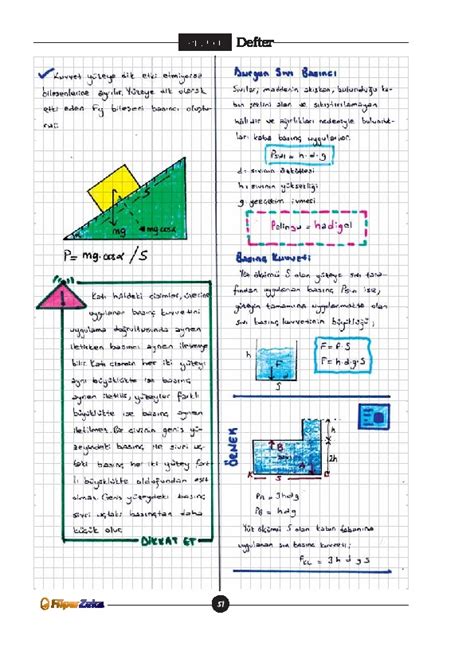 Defter
Kuvvet yüzeye dik etki etmiyorsa
bileşenlerine ayrılır. Yüzeye dik olarak
etki eden Fy bileşeni basıncı oluştu-
rur.
mg
mg cosα
P = mg.cosα / S
Katı haldeki cisimler, üzerine
uygulanan basınç kuvvetini
uygulama doğrultusunda aynen
iletirken basıncı aynen iletmeye-
bilir. Katı cismin her iki yüzey
aynı büyüklükte ise basınç
aynen iletilir, yüzeyler farklı
büyüklükte ise basınç aynen
iletilmez. Bir çivinin geniş yü-
zeyindeki basınç ile sivri uç-
taki basınç her iki yüzey fark-
lı büyüklükte olduğundan eşit
olmaz. Geniş yüzeydeki basınç
sivri uçtaki basınçtan daha
küçük olur.
DİKKAT ET
Durgun Sıvı Basıncı
Sıvılar, maddenin akışkan, bulunduğu ka-
bın şeklini alan ve sıkıştırılamayan
hâlidir ve ağırlıkları nedeniyle bulunduk-
ları kaba basınç uygularlar.
Psıvı = h.d.g
d: sıvının özkütlesi
h: sıvının yüksekliği
g: yerçekim ivmesi
= hadigel
Basınç Kuvveti
Yüz ölçümü S olan yüzeye sıvı tara-
fından uygulanan basınç Psıvı ise,
yüzeyin tamamına uygulanmakta olan
sıvı basınç kuvvetinin büyüklüğü;
h
F
S
F = P.S
F = h.d.g.S
ÖRNEK
B
h
2h
A
K
S
L
PA = 3hdg
PB = hdg
Yüz ölçümü S olan kabın tabanına
uygulanan sıvı basınç kuvveti;
FKL = 3h d g S
51